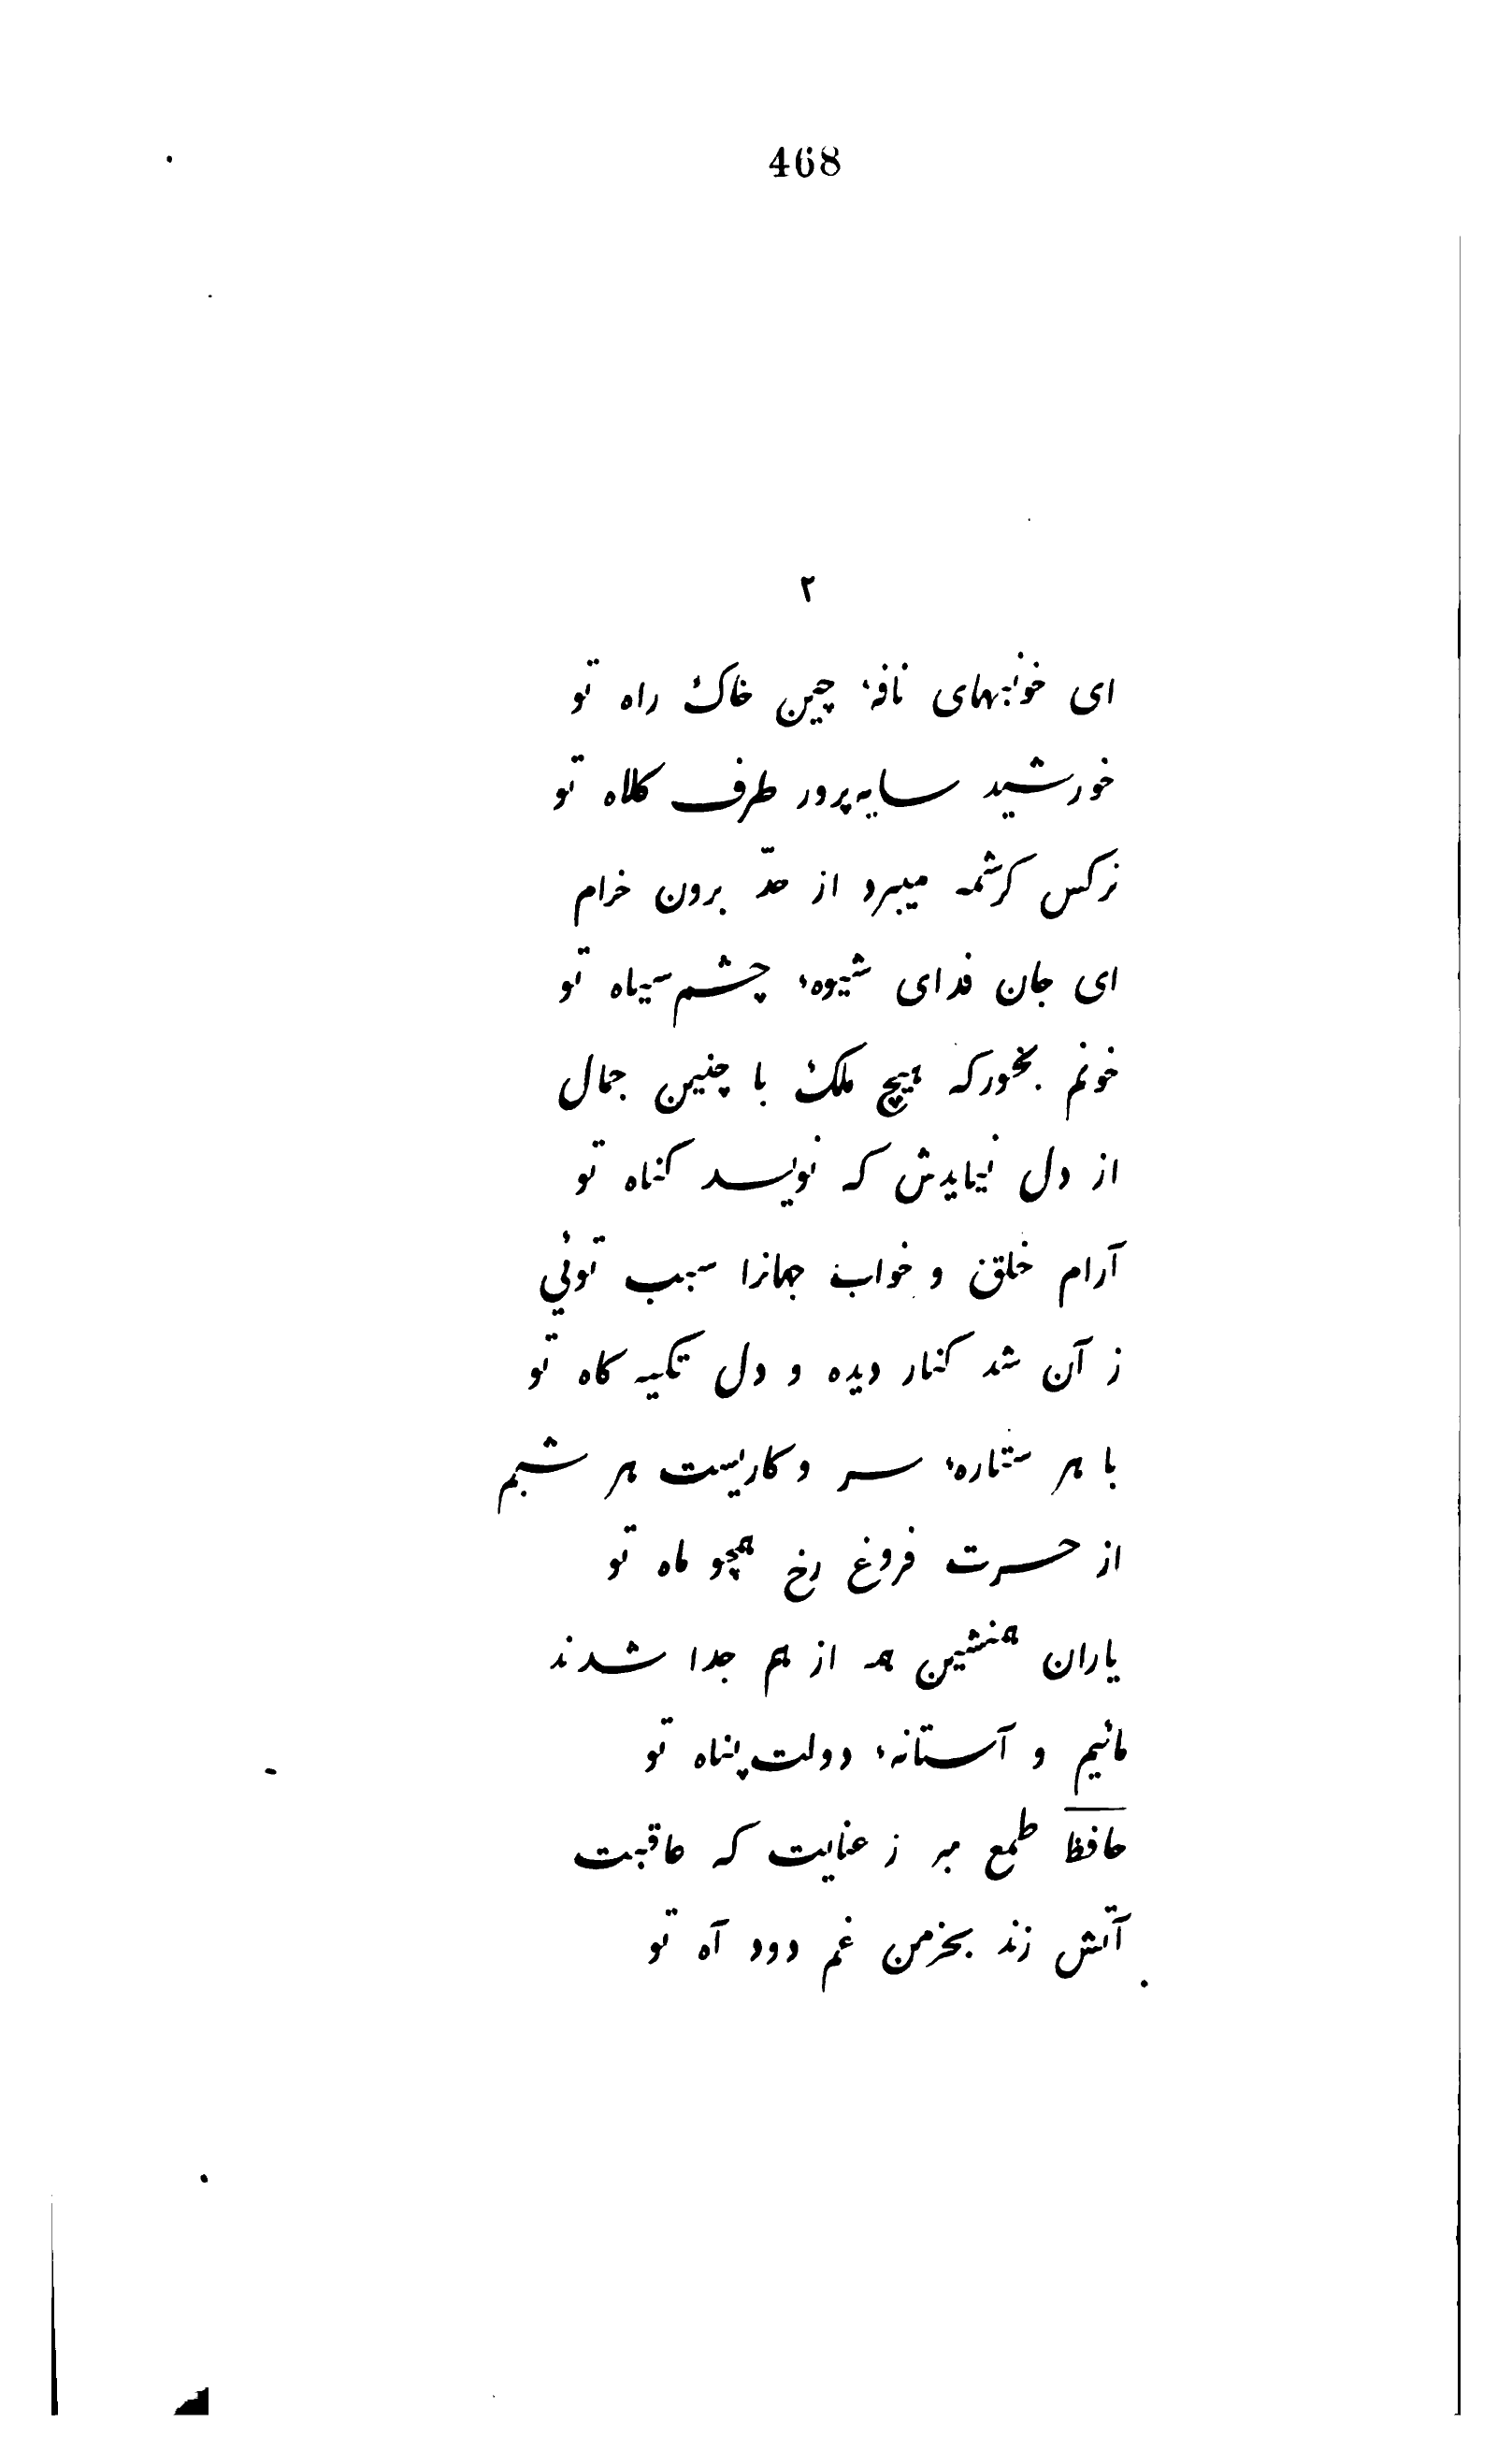 468
۲
ای خونبهای نافهٔ چین خاک راه تو
خورشید سایه‌پرور طرف کلاه تو
نرکس کرشمه میبرد از حدّ برون خرام
ای جان فدای شیوهٔ چشم سیاه تو
خونم بخور که هیچ ملک با چنین جمال
از دل نیایدش که نویسد کناه تو
آرام خلق و خواب جهانرا سبب توئي
ز آن شد کنار دیده و دل تکیه کاه تو
با هر ستارهٔ سر و کاریست هر شبم
از حسرت فروغ رخ همچو ماه تو
یاران همنشین همه از هم جدا شدند
مائیم و آستانهٔ دولت پناه تو
حافظ طمع مبر ز عنایت که عاقبت
آتش زند بخرمن غم دود آه تو